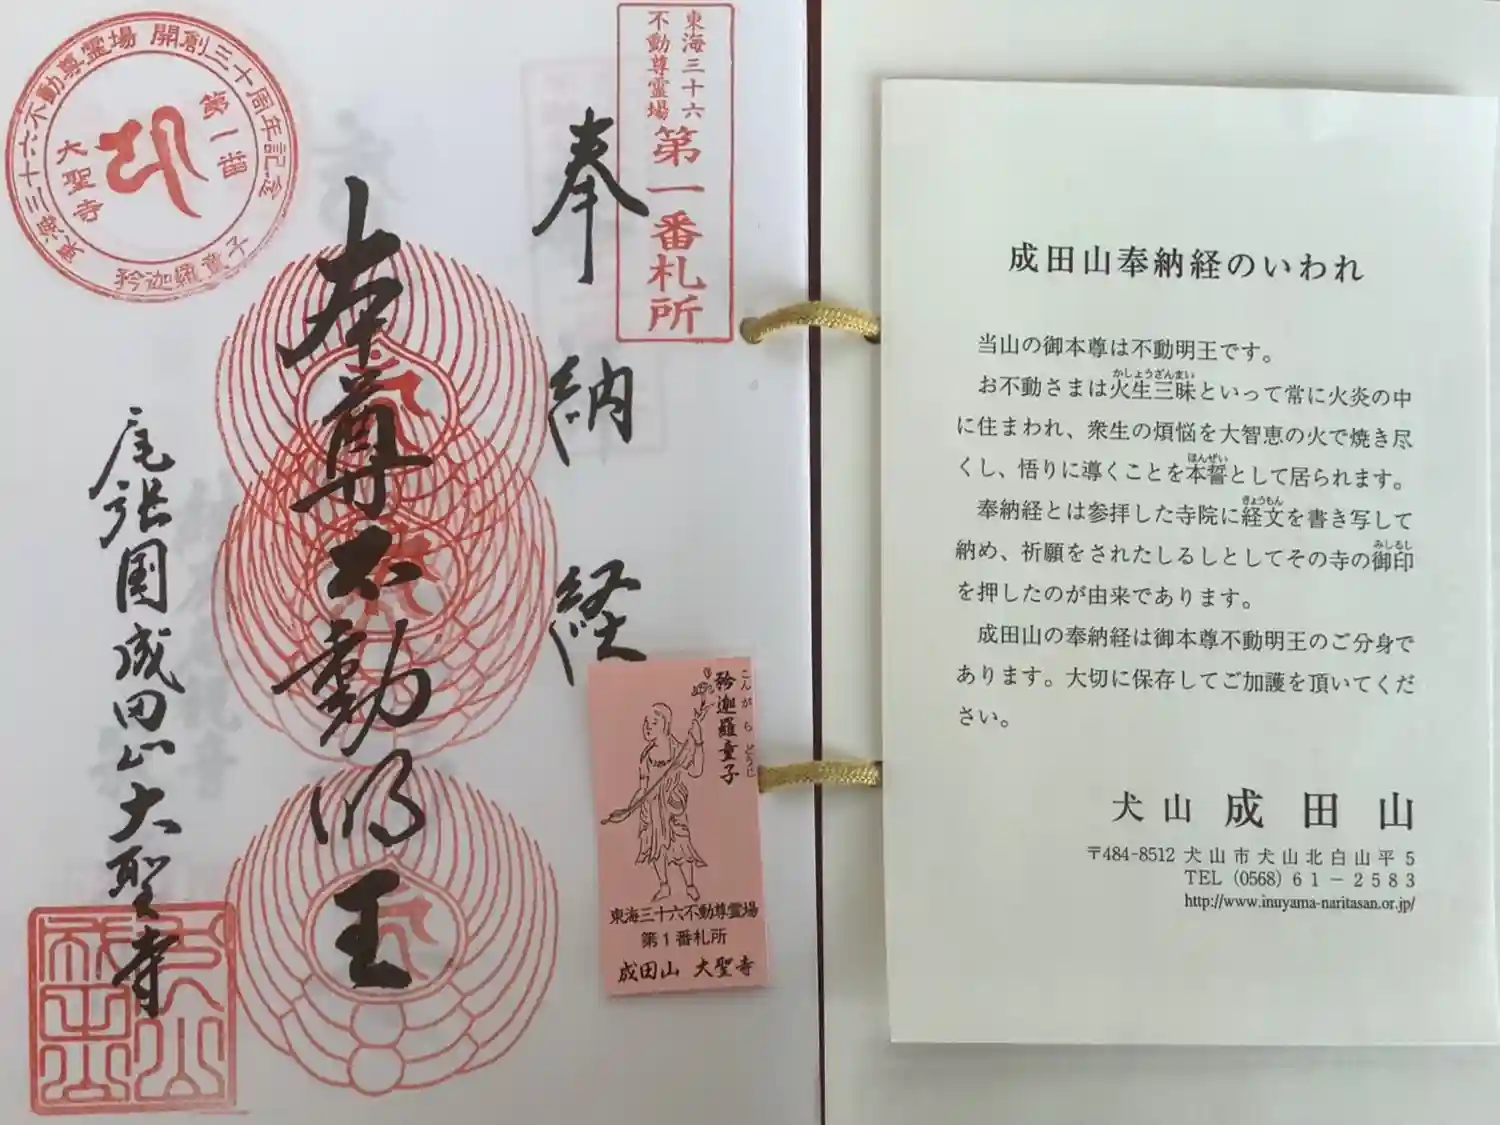 東海三十六不動尊霊場 開創三十周年記念
第一番
大聖寺
矜迦羅童子
東海三十六
不動尊霊場
第一番札所
奉納経
本尊不動明王
尾張国成田山大聖寺
こんがら どうじ
矜迦羅童子
東海三十六不動尊霊場
第1番札所
成田山 大聖寺
成田山奉納経のいわれ
当山の御本尊は不動明王です。
かしょうざんまい
お不動さまは火生三昧といって常に火炎の中
に住まわれ、衆生の煩悩を大智恵の火で焼き尽
ほんぜい
くし、悟りに導くことを本誓として居られます。
きょうもん
奉納経とは参拝した寺院に経文を書き写して
みしるし
納め、祈願をされたしるしとしてその寺の御印
を押したのが由来であります。
成田山の奉納経は御本尊不動明王のご分身で
あります。大切に保存してご加護を頂いてくだ
さい。
犬山 成田山
〒484-8512 犬山市犬山北白山平5
TEL (0568) 61-2583
http://www.inuyama-naritasan.or.jp/